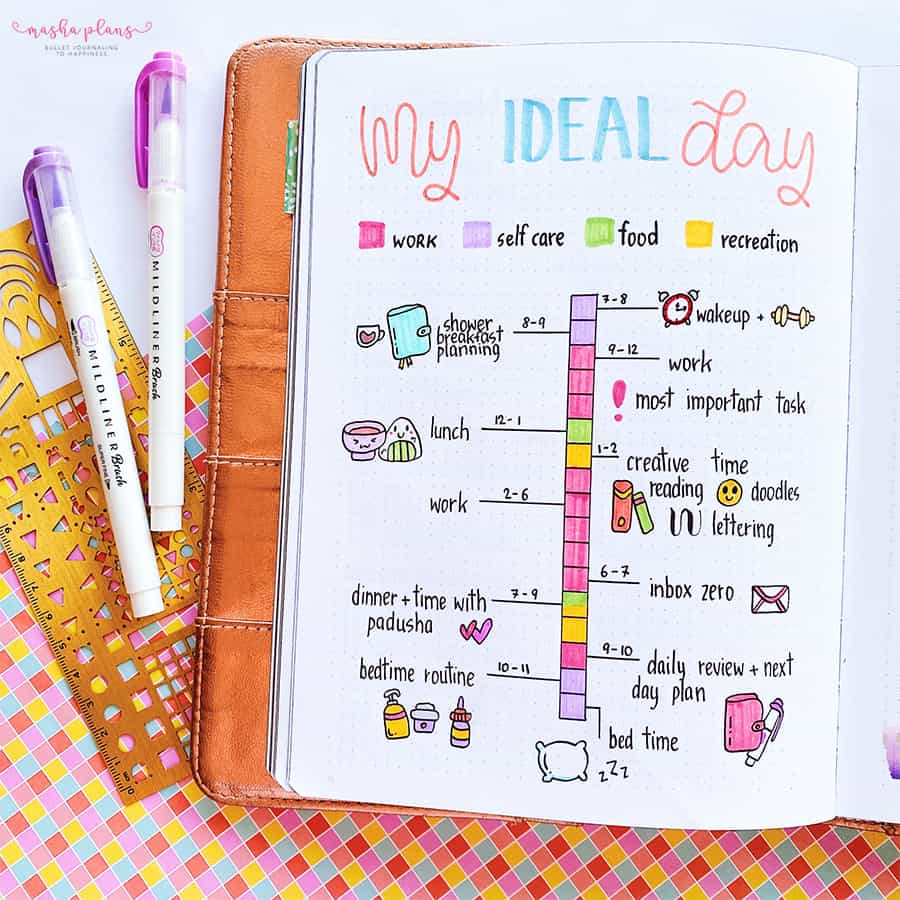 masha plans
BULLET JOURNALING
TO HAPPINESS
My IDEAL day
WORK
self care
food
recreation
7-8
wakeup +
8-9
shower
breakfast
planning
9-12
work
! most important task
12-1
lunch
1-2
creative time
reading
doodles
lettering
2-6
work
6-7
inbox zero
7-9
dinner + time with
padusha
9-10
daily review + next
day plan
10-11
bedtime routine
bed time
zzz
MILDLINER Brush
MILDLINER Brush